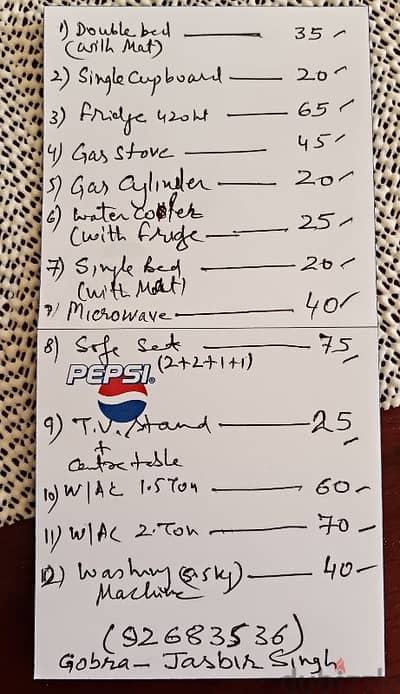 1) Double bed — 35
(with Mat)
2) Single Cupboard — 20
3) Fridge 420 lt — 65
4) Gas Stove — 45
5) Gas Cylinder — 20
6) Water Cooler
(with fridge — 25
7) Single bed — 20
(with Mat)
Microwave — 40
8) Sofe Set — 75
(2+2+1+1)
PEPSI
9) T.V. Stand — 25
+
Centre table
10) W/AC 1.5 Ton — 60
11) W/AC 2. Ton — 70
12) Washing — 40
Machine
(92683536)
Gobra – Jasbir Singh